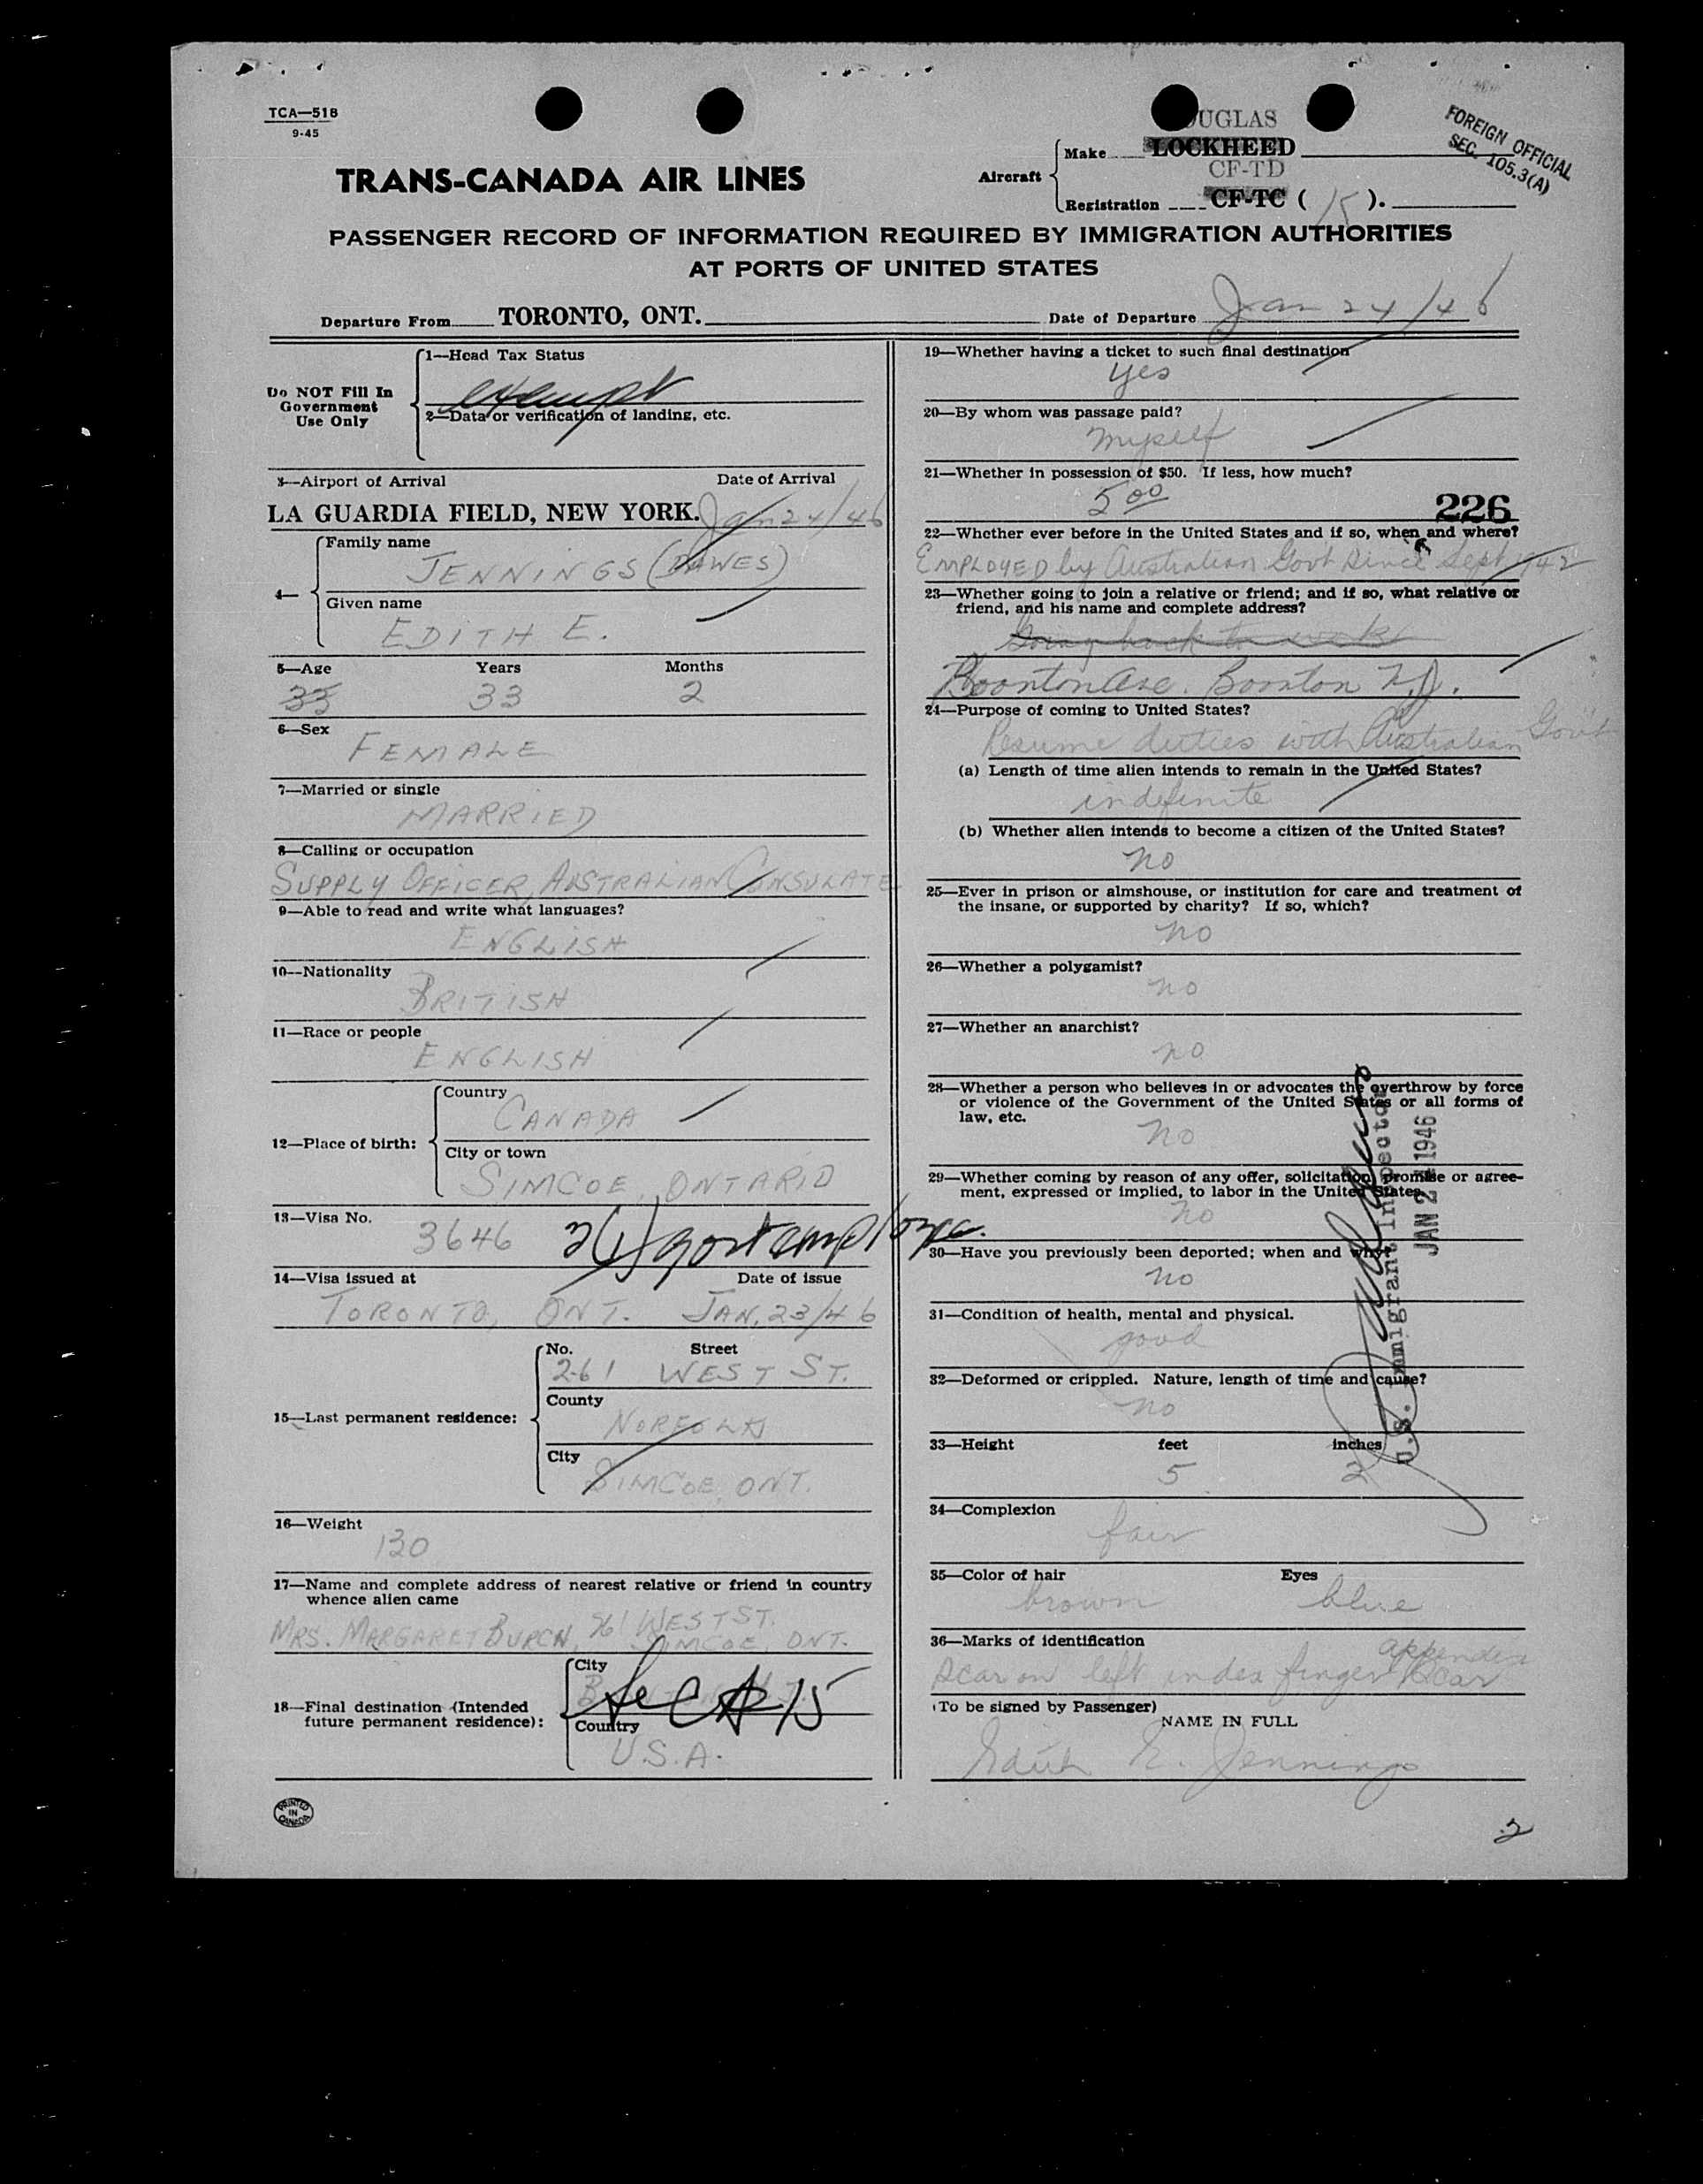 TCA—518
9-45
UGLAS
FOREIGN OFFICIAL
SEC. 105.3(A)
TRANS-CANADA AIR LINES
Aircraft
Make LOCKHEED
CF-TD
Registration CF-TC ( ).
PASSENGER RECORD OF INFORMATION REQUIRED BY IMMIGRATION AUTHORITIES
AT PORTS OF UNITED STATES
Departure From TORONTO, ONT.
Date of Departure Jan 24/46
Do NOT Fill In
Government
Use Only
1—Head Tax Status
exempt
2—Data or verification of landing, etc.
3—Airport of Arrival Date of Arrival
LA GUARDIA FIELD, NEW YORK. Jan 24/46
4—
Family name
JENNINGS (DAWES)
Given name
EDITH E.
5—Age Years Months
33 33 2
6—Sex
FEMALE
7—Married or single
MARRIED
8—Calling or occupation
SUPPLY OFFICER, AUSTRALIAN CONSULATE
9—Able to read and write what languages?
ENGLISH
10—Nationality
BRITISH
11—Race or people
ENGLISH
12—Place of birth:
Country
CANADA
City or town
SIMCOE, ONTARIO
13—Visa No.
3646
14—Visa issued at Date of issue
TORONTO, ONT. JAN. 23/46
15—Last permanent residence:
No. Street
261 WEST ST.
County
NORFOLK
City
SIMCOE, ONT.
16—Weight
130
17—Name and complete address of nearest relative or friend in country
whence alien came
MRS. MARGARET BURCH, 261 WEST ST.
SIMCOE, ONT.
18—Final destination (Intended
future permanent residence):
City
Sec 15
Country
U.S.A.
PRINTED
IN
CANADA
19—Whether having a ticket to such final destination
yes
20—By whom was passage paid?
myself
21—Whether in possession of $50. If less, how much?
5 00
226
22—Whether ever before in the United States and if so, when and where?
EMPLOYED by Australian Govt since Sept 1942
23—Whether going to join a relative or friend; and if so, what relative or
friend, and his name and complete address?
Going back to work
Boonton Ave. Boonton N.J.
24—Purpose of coming to United States?
Resume duties with Australian Gov't
(a) Length of time alien intends to remain in the United States?
indefinite
(b) Whether alien intends to become a citizen of the United States?
no
25—Ever in prison or almshouse, or institution for care and treatment of
the insane, or supported by charity? If so, which?
no
26—Whether a polygamist?
no
27—Whether an anarchist?
no
28—Whether a person who believes in or advocates the overthrow by force
or violence of the Government of the United States or all forms of
law, etc.
no
29—Whether coming by reason of any offer, solicitation, promise or agree-
ment, expressed or implied, to labor in the United States
no
30—Have you previously been deported; when and why?
no
31—Condition of health, mental and physical.
good
32—Deformed or crippled. Nature, length of time and cause?
no
33—Height feet inches
5 2
34—Complexion
fair
35—Color of hair Eyes
brown blue
36—Marks of identification
scar on left index finger appendix scar
(To be signed by Passenger)
NAME IN FULL
Edith E. Jennings
U.S. Immigrant Inspector
JAN 24 1946
2